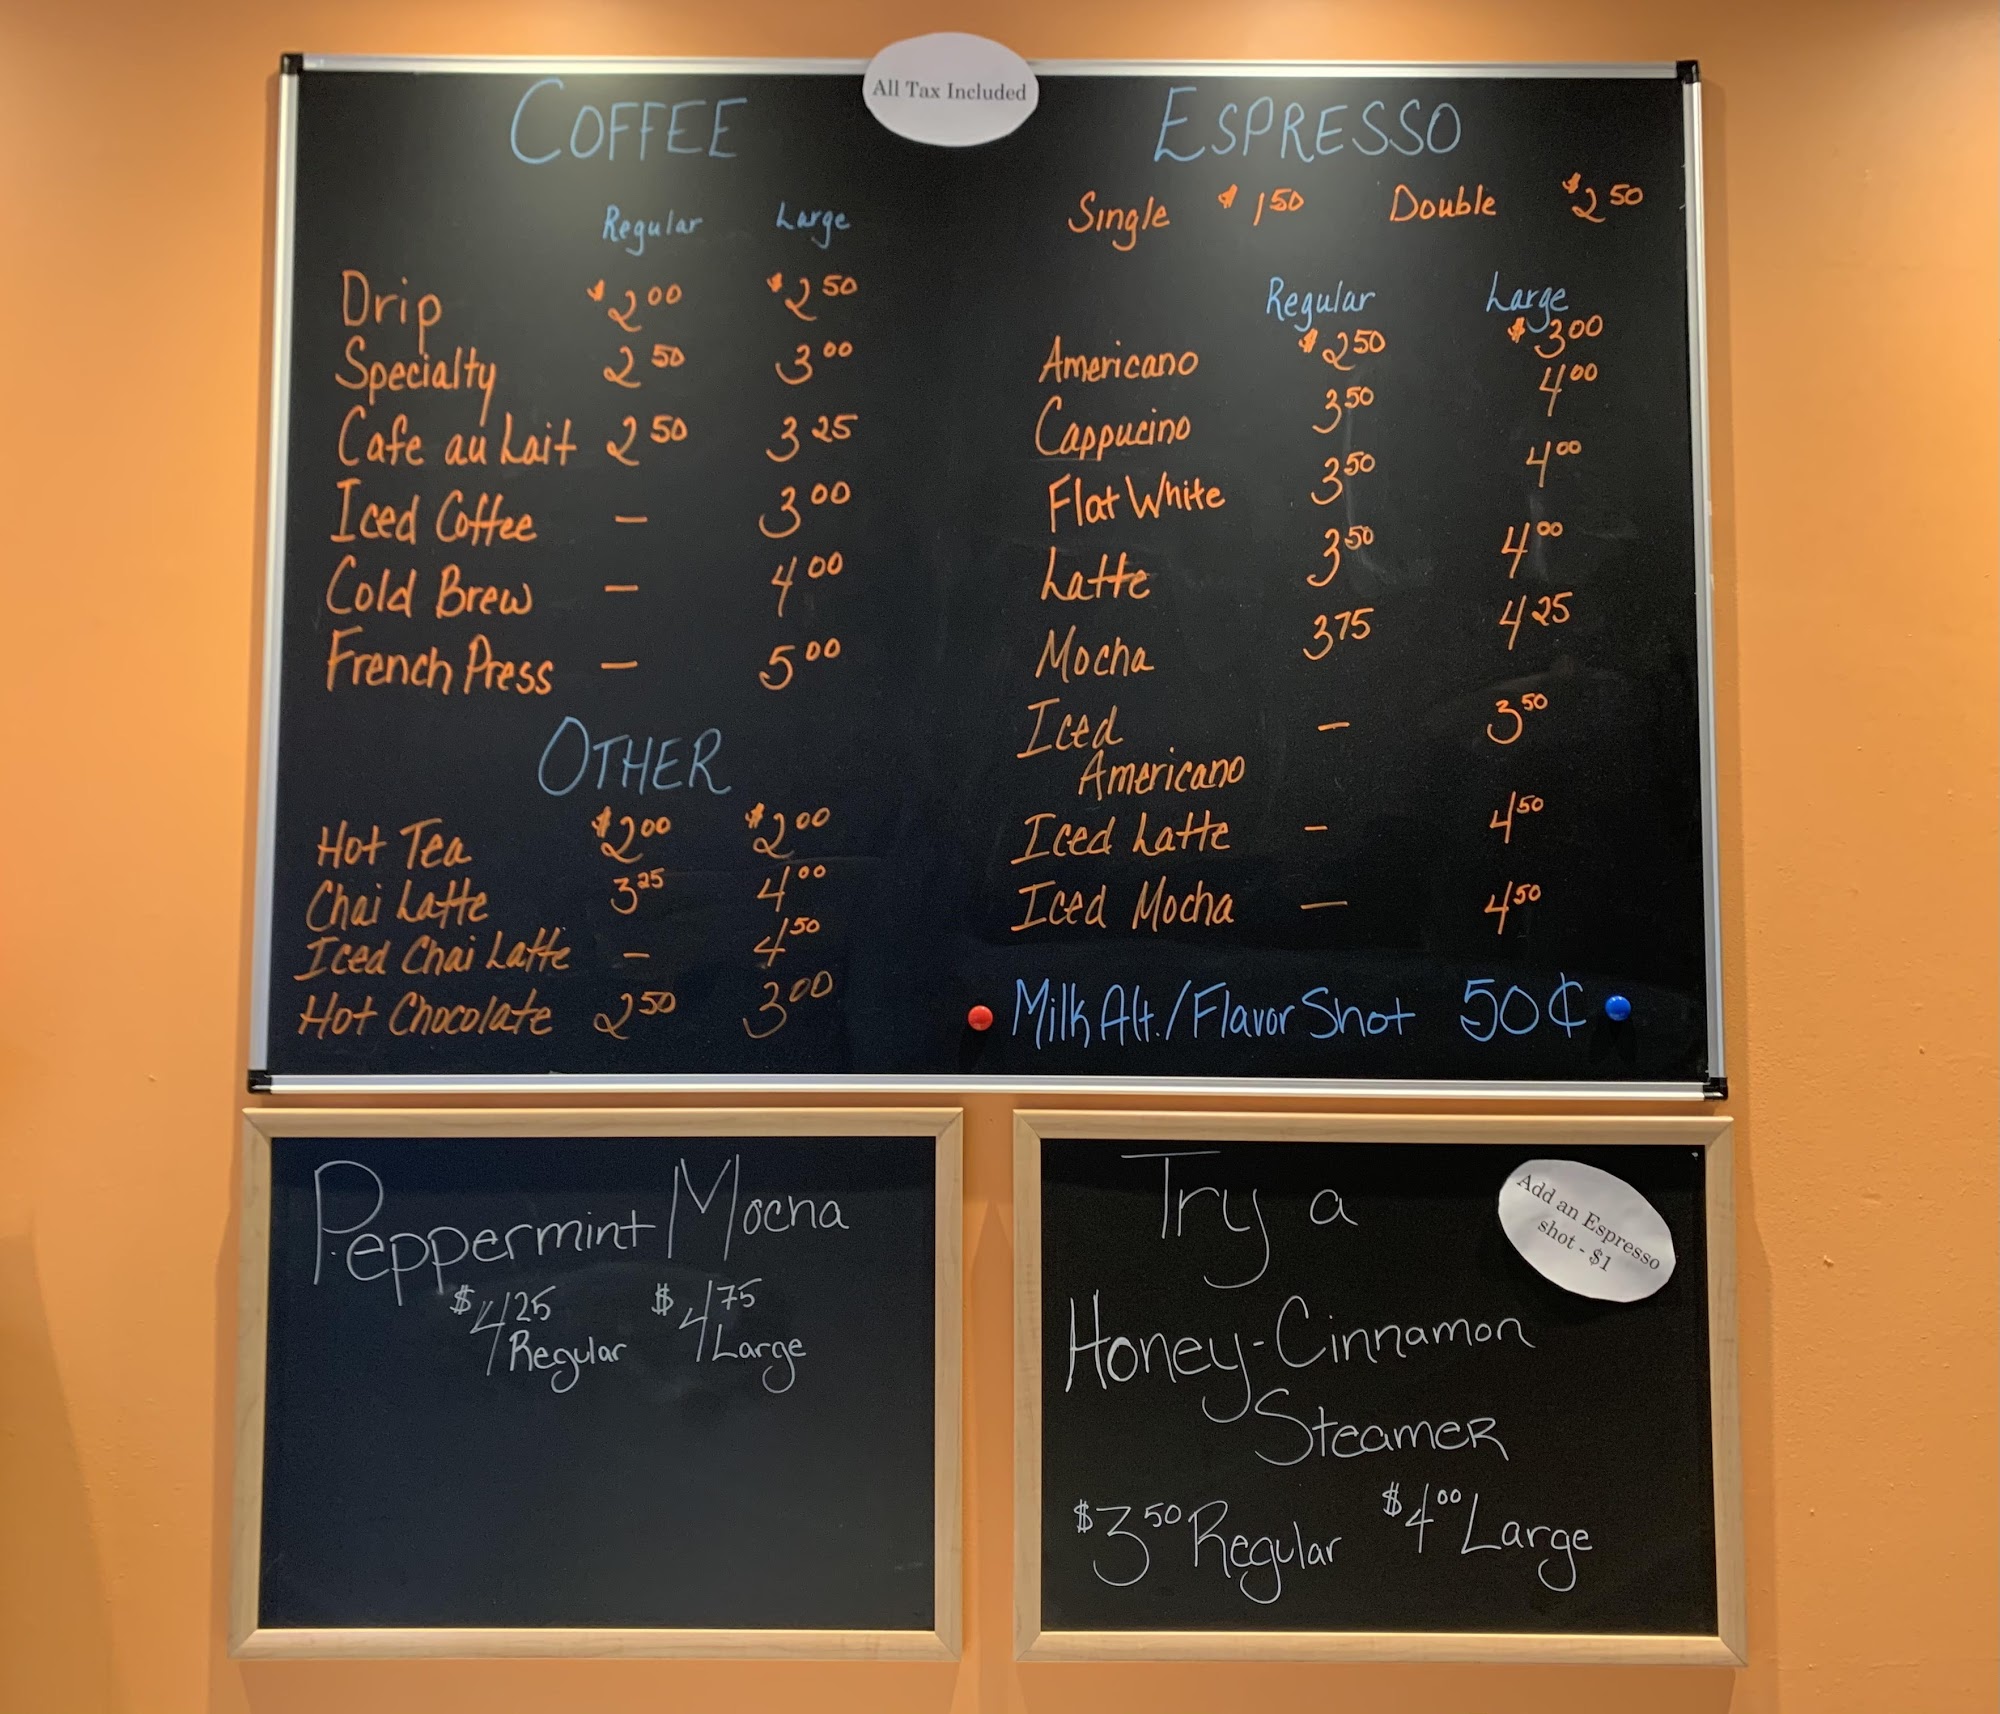 All Tax Included
COFFEE
Regular Large
Drip $2.00 $2.50
Specialty 2.50 3.00
Cafe au Lait 2.50 3.25
Iced Coffee – 3.00
Cold Brew – 4.00
French Press – 5.00
OTHER
Hot Tea $2.00 $2.00
Chai Latte 3.25 4.00
Iced Chai Latte – 4.50
Hot Chocolate 2.50 3.00
ESPRESSO
Single $1.50 Double $2.50
Regular Large
Americano $2.50 $3.00
Cappucino 3.50 4.00
Flat White 3.50 4.00
Latte 3.50 4.00
Mocha 3.75 4.25
Iced – 3.50
Americano
Iced Latte – 4.50
Iced Mocha – 4.50
Milk Alt./Flavor Shot 50¢
Peppermint Mocha
$4.25 $4.75
Regular Large
Try a
Add an Espresso
shot - $1
Honey-Cinnamon
Steamer
$3.50 Regular $4.00 Large